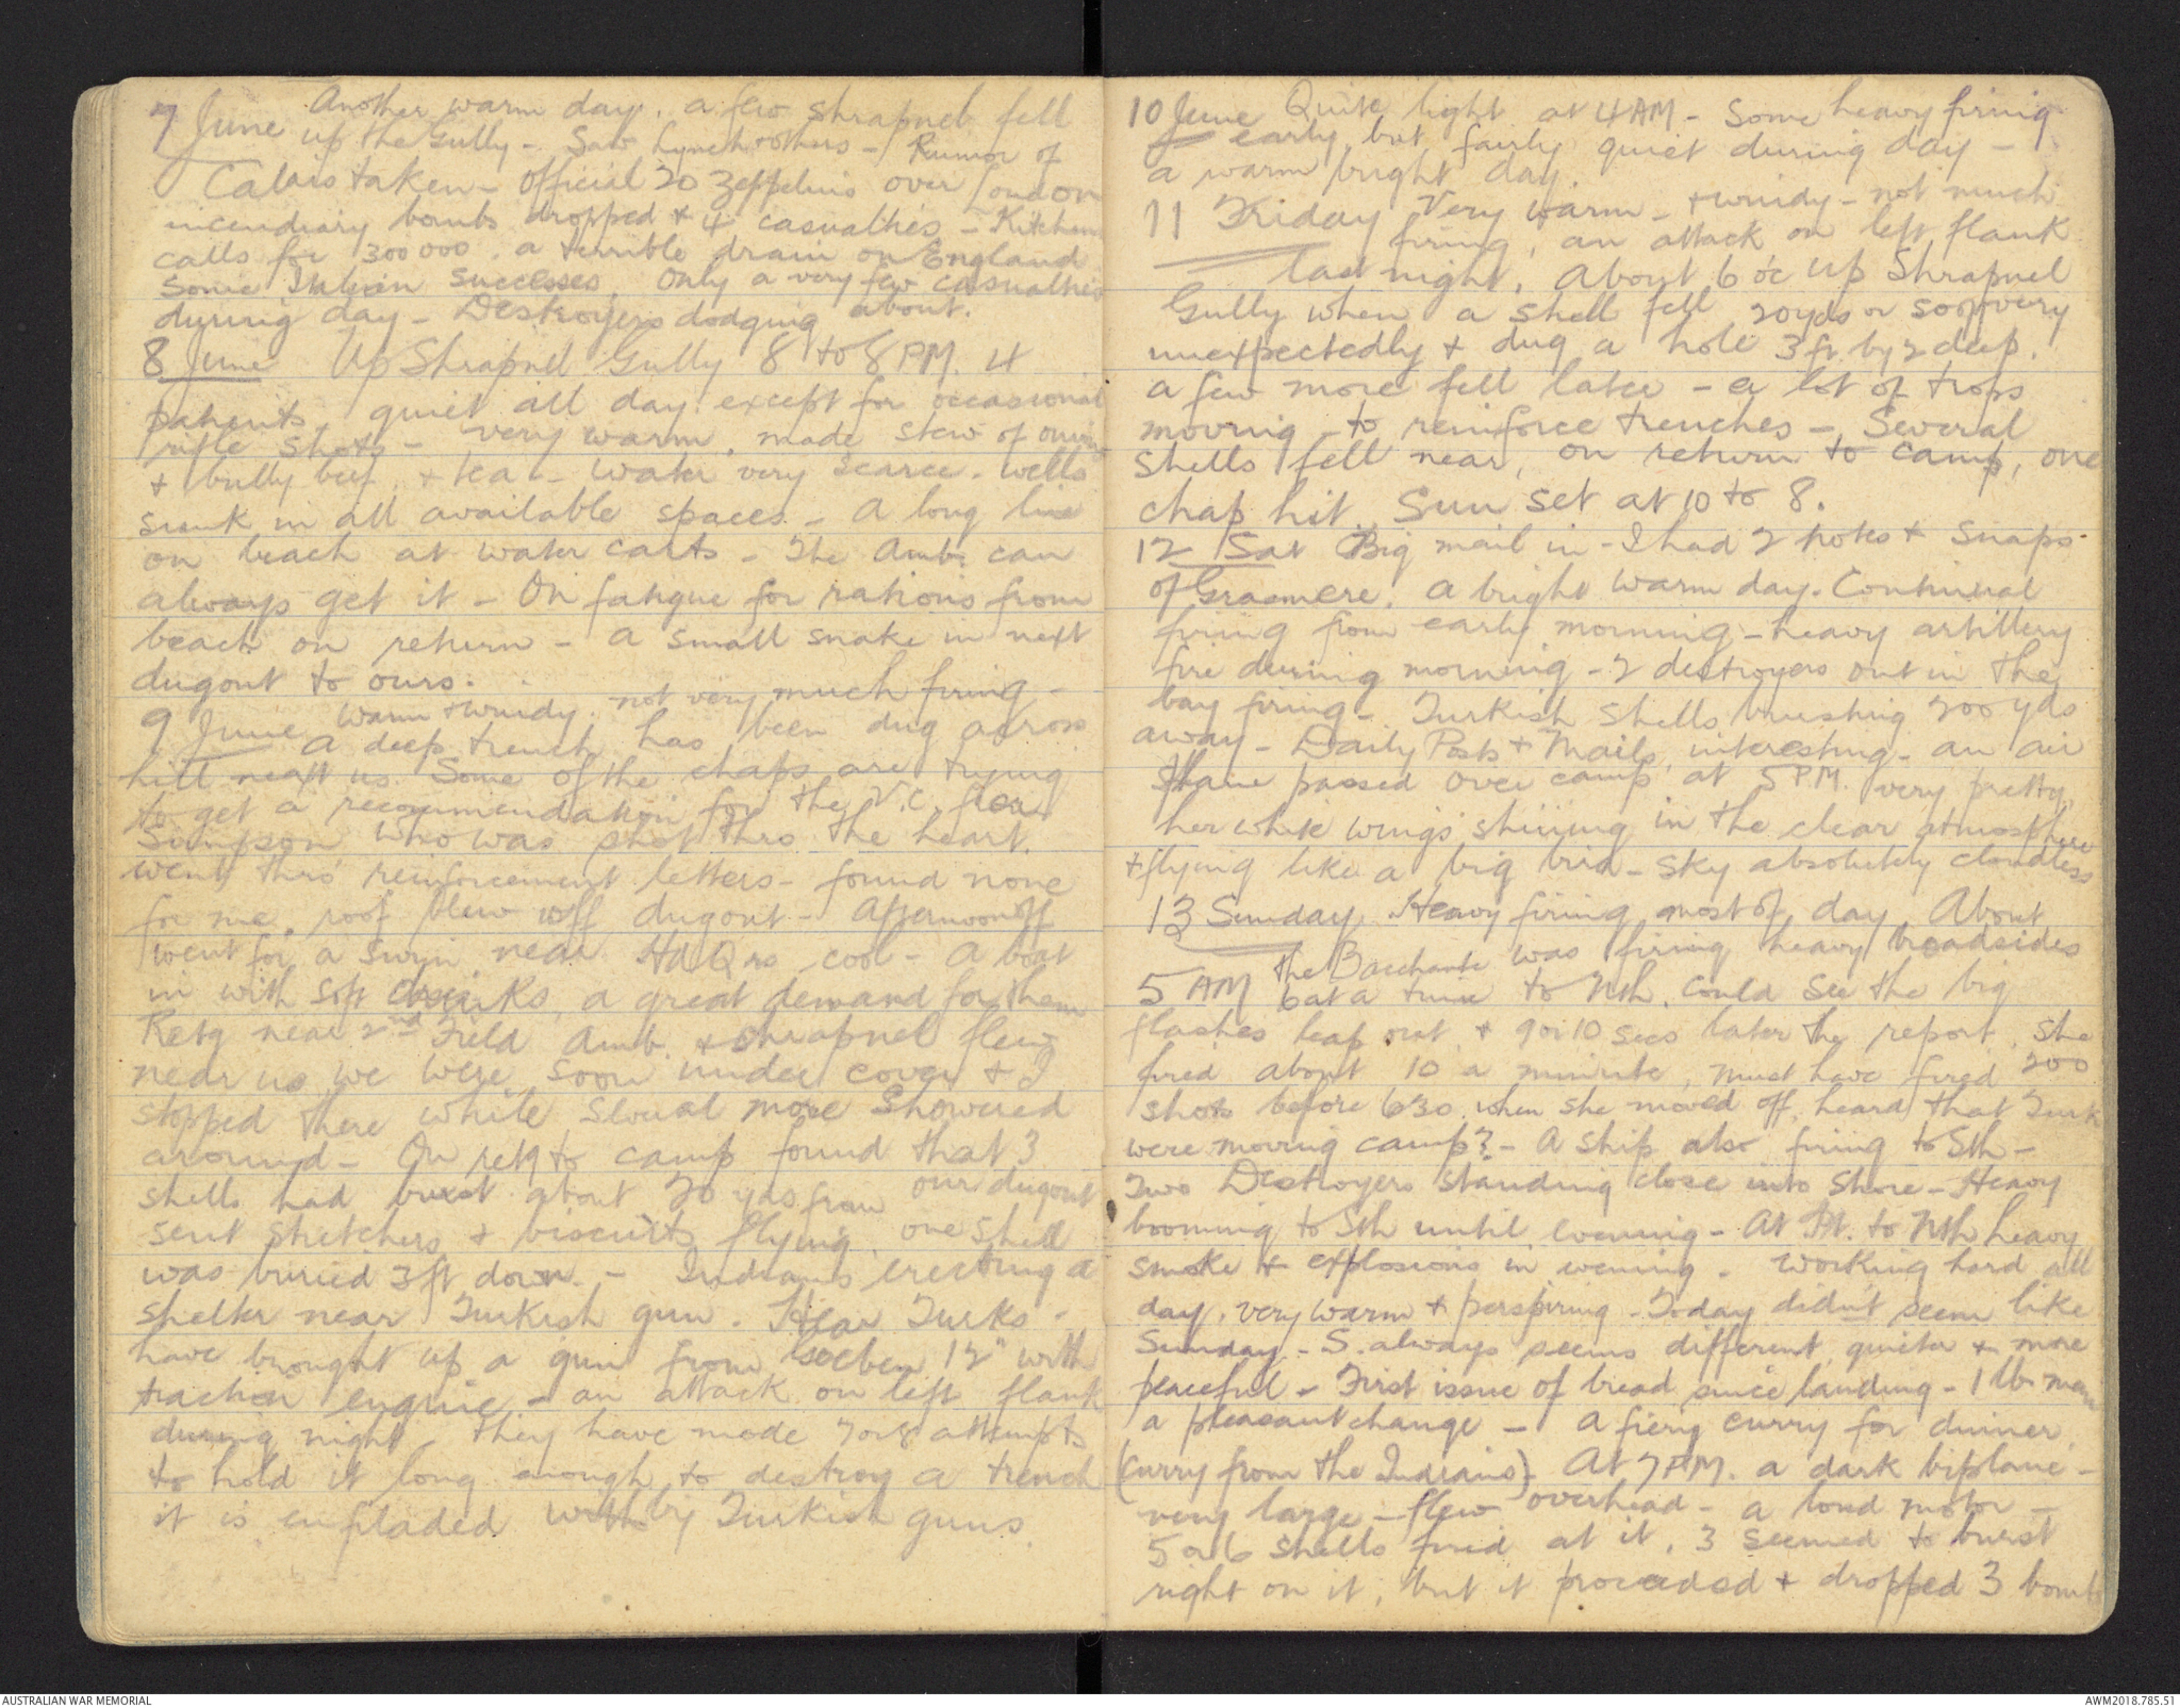 7 June Another warm day. a few shrapnel fell
up the Gully - Saw Lynch + others - Rumor of
Calais taken - Official 20 Zeppelins over London
incendiary bombs dropped + 4 casualties - Kitchener
calls for 300 000. a terrible drain on England
Some Italian successes. Only a very few casualties
during day - Destroyers dodging about.
8 June Up Shrapnel Gully 8 to 8 PM. 4
patients, quiet all day except for occasional
rifle shots - very warm. made stew of onions
+ bully beef. + tea - Water very scarce. wells
sunk in all available spaces - A long line
on beach at water carts - The Amb. can
always get it - On fatigue for rations from
beach on return - a small snake in next
dugout to ours.
9 June Warm + windy. not very much firing -
A deep trench has been dug across
hill near us. Some of the chaps are trying
to get a recommendation for the V.C. for
Simpson who was shot thro the heart.
went thro' reinforcement letters - found none
for me. roof blew off dugout - Afternoon off
went for a swim near HdQrs cool - A boat
in with soft drinks, a great demand for them
Retg near 2nd Field Amb. + shrapnel flew
near us we were soon under cover + I
stopped there while several more showered
around - On retg to camp found that 3
shells had burst about 20 yds from our dugout
sent stretchers + biscuits flying, one shell
was buried 3ft down. - Indians erecting a
shelter near Turkish gun. Hear Turks -
have brought up a gun from Goeben 12" with
traction engine - an attack on left flank
during night - they have made 7 or 8 attempts
to hold it long enough to destroy a trench
it is enfiladed with by Turkish guns.
10 June Quite light at 4 AM - Some heavy firing
early, but fairly quiet during day -
a warm bright day.
11 Friday Very warm - + windy - not much
firing, an attack on left flank
last night. About 6 oc up Shrapnel
Gully when a shell fell 20 yds or so off very
unexpectedly + dug a hole 3 ft. by 2 deep.
a few more fell later - a lot of trops
moving to reinforce trenches - Several
shells fell near, on return to camp, one
chap hit. Sun set at 10 to 8.
12 Sat Big mail in - I had 2 notes + snaps
of Grasmere. A bright warm day. Continual
firing from early morning - heavy artillery
fire during morning - 2 destroyers out in the
bay firing - Turkish shells bursting 200 yds
away - Daily Posts + Mails, interesting - an air
plane passed over camp at 5 PM. very pretty,
her white wings shining in the clear atmosphere
+ flying like a big bird - sky absolutely cloudless
13 Sunday Heavy firing most of day. About
5 AM the Bacchante was firing heavy broadsides
6 at a time to Nth. could see the big
flashes leap out + 9 or 10 secs later the report. She
fired about 10 a minute, must have fired 200
shots before 630 when she moved off, heard that Turks
were moving camp? - A ship also firing to Sth -
Two Destroyers standing close into shore - Heavy
booming to Sth until evening - At Pt. to Nth heavy
smoke + explosions in evening. Working hard all
day, very warm + perspiring - Today didn't seem like
Sunday - S. always seems different, quieter + more
peaceful - First issue of bread since landing - 1 lb man
a pleasant change - a fiery curry for dinner
(curry from the Indians) - At 7 PM. a dark biplane -
very large - flew overhead - a loud motor -
5 or 6 shells fired at it, 3 seemed to burst
right on it, but it proceeded + dropped 3 bombs
AUSTRALIAN WAR MEMORIAL
AWM2018.785.51